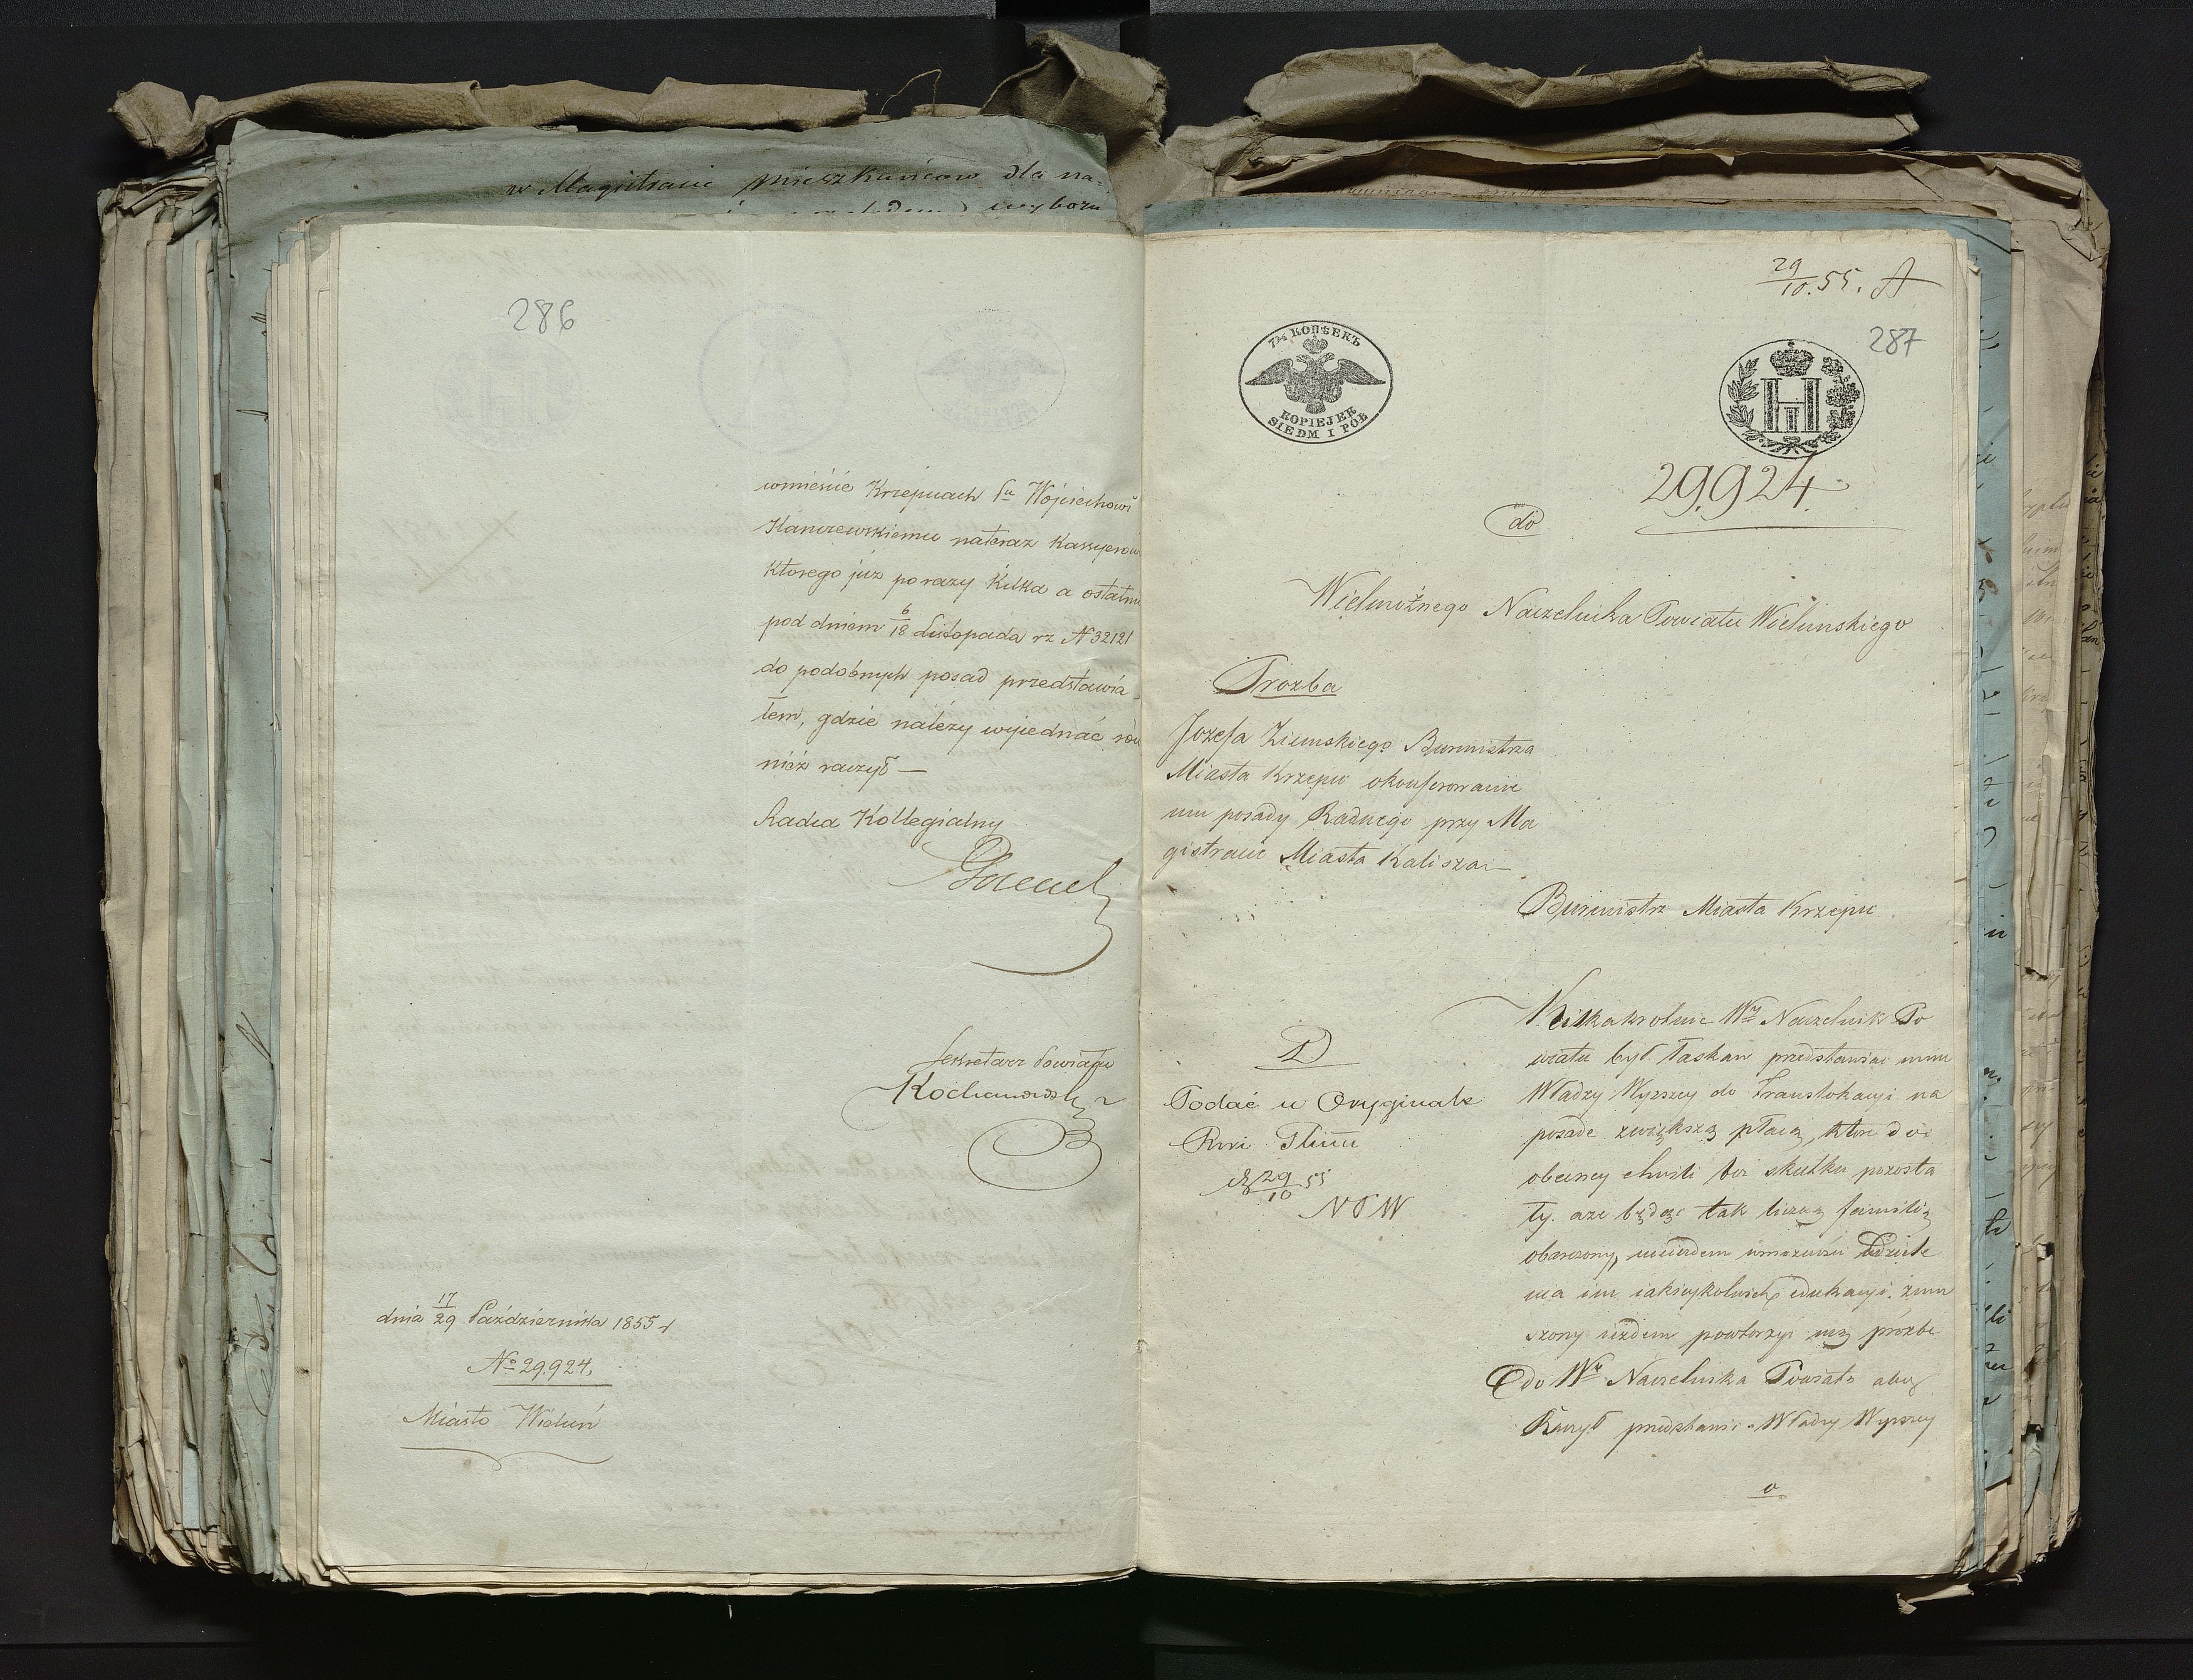 w Magistracie mieszkańców dla na=
wyboru
286
wmieście Krzepicach Pu Wojciechowi
Hanczewskiemu nateraz Kassyerow
którego już po razy kilka a ostatnio
pod dniem 6/18 Listopada rz N 32121
do podobnych posad przedstawia
łem, gdzie należy wyjednać rów
nież raczył —
Radca Kollegialny
Sekretarz Powiatu
Kochanowski
dnia 17/29 Października 1855 r
No 29.924,
Miasto Wieluń
29/10. 55.
287
7½ КОПѢЕКЪ
KOPIEJEK
SIEDM I PÓŁ
29.924.
do
Wielmożnego Naczelnika Powiatu Wielunskiego
Prozba
Jozefa Ziemskiego Burmistrza
Miasta Krzepic okonferowanie
mu posady Radnego przy Ma
gistracie Miasta Kalisza —
Burmistrz Miasta Krzepic
Kilkakrotnie Wny Naczelnik Po
wiatu był łaskaw przedstawiać mnie
Władzy Wyzszey do Translokacyi na
posade zwiększą płacą, które do
obecney chwili bez skutku pozosta
ły. aże będąc tak liczną familią
obarczony, niejestem wmożności udziele
nia im iakieykolwiek edukacyi. zmu
szony iestem powtorzyć mą prozbe
do Wo Naczelnika Powiatu aby
Raczył przedstawić Władzy Wyzszey
o
D
Podać w Oryginale
29/10 55
N P W